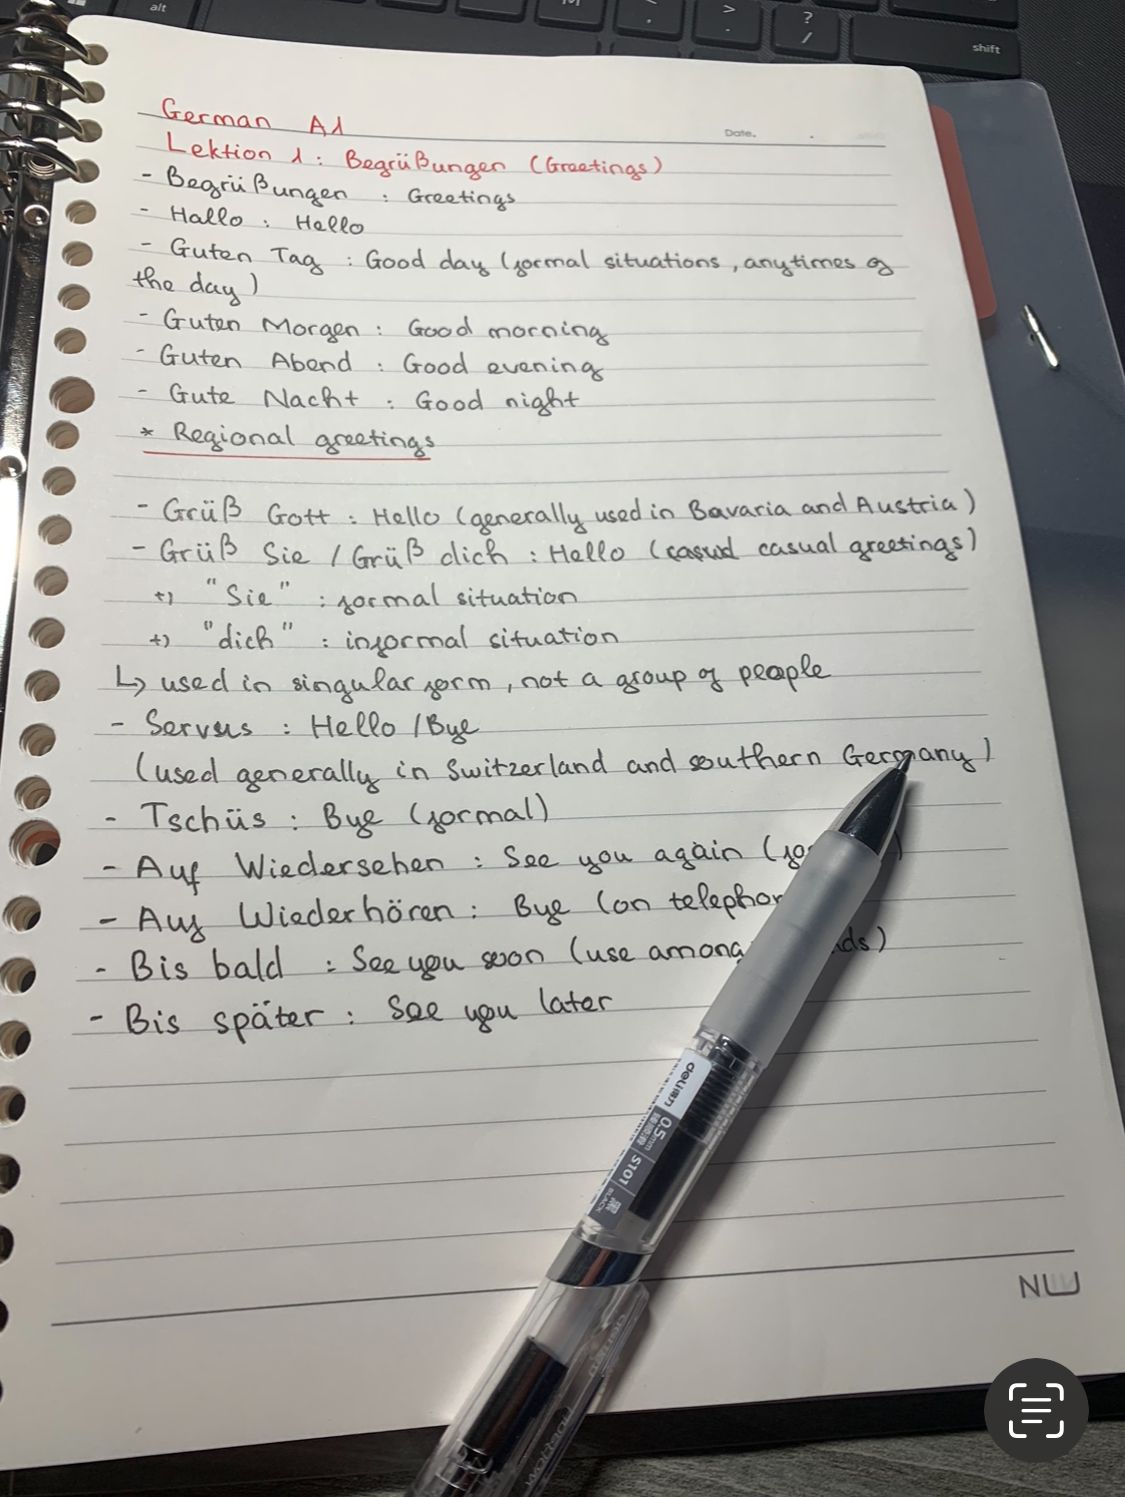 alt
M
< ,
> .
? /
shift
German A1
Date.
Lektion 1: Begrüßungen (Greetings)
- Begrüßungen : Greetings
- Hallo : Hello
- Guten Tag : Good day (formal situations, anytimes of
the day)
- Guten Morgen : Good morning
- Guten Abend : Good evening
- Gute Nacht : Good night
* Regional greetings
- Grüß Gott : Hello (generally used in Bavaria and Austria)
- Grüß Sie / Grüß dich : Hello (casual greetings)
+) "Sie" : formal situation
+) "dich" : informal situation
↳ used in singular form, not a group of people
- Servus : Hello / Bye
(used generally in Switzerland and southern Germany)
- Tschüs : Bye (formal)
- Auf Wiedersehen : See you again (
- Auf Wiederhören : Bye (on
- Bis bald : See you soon (use among
- Bis später : See you later
deli
0.5mm
S101
BLACK